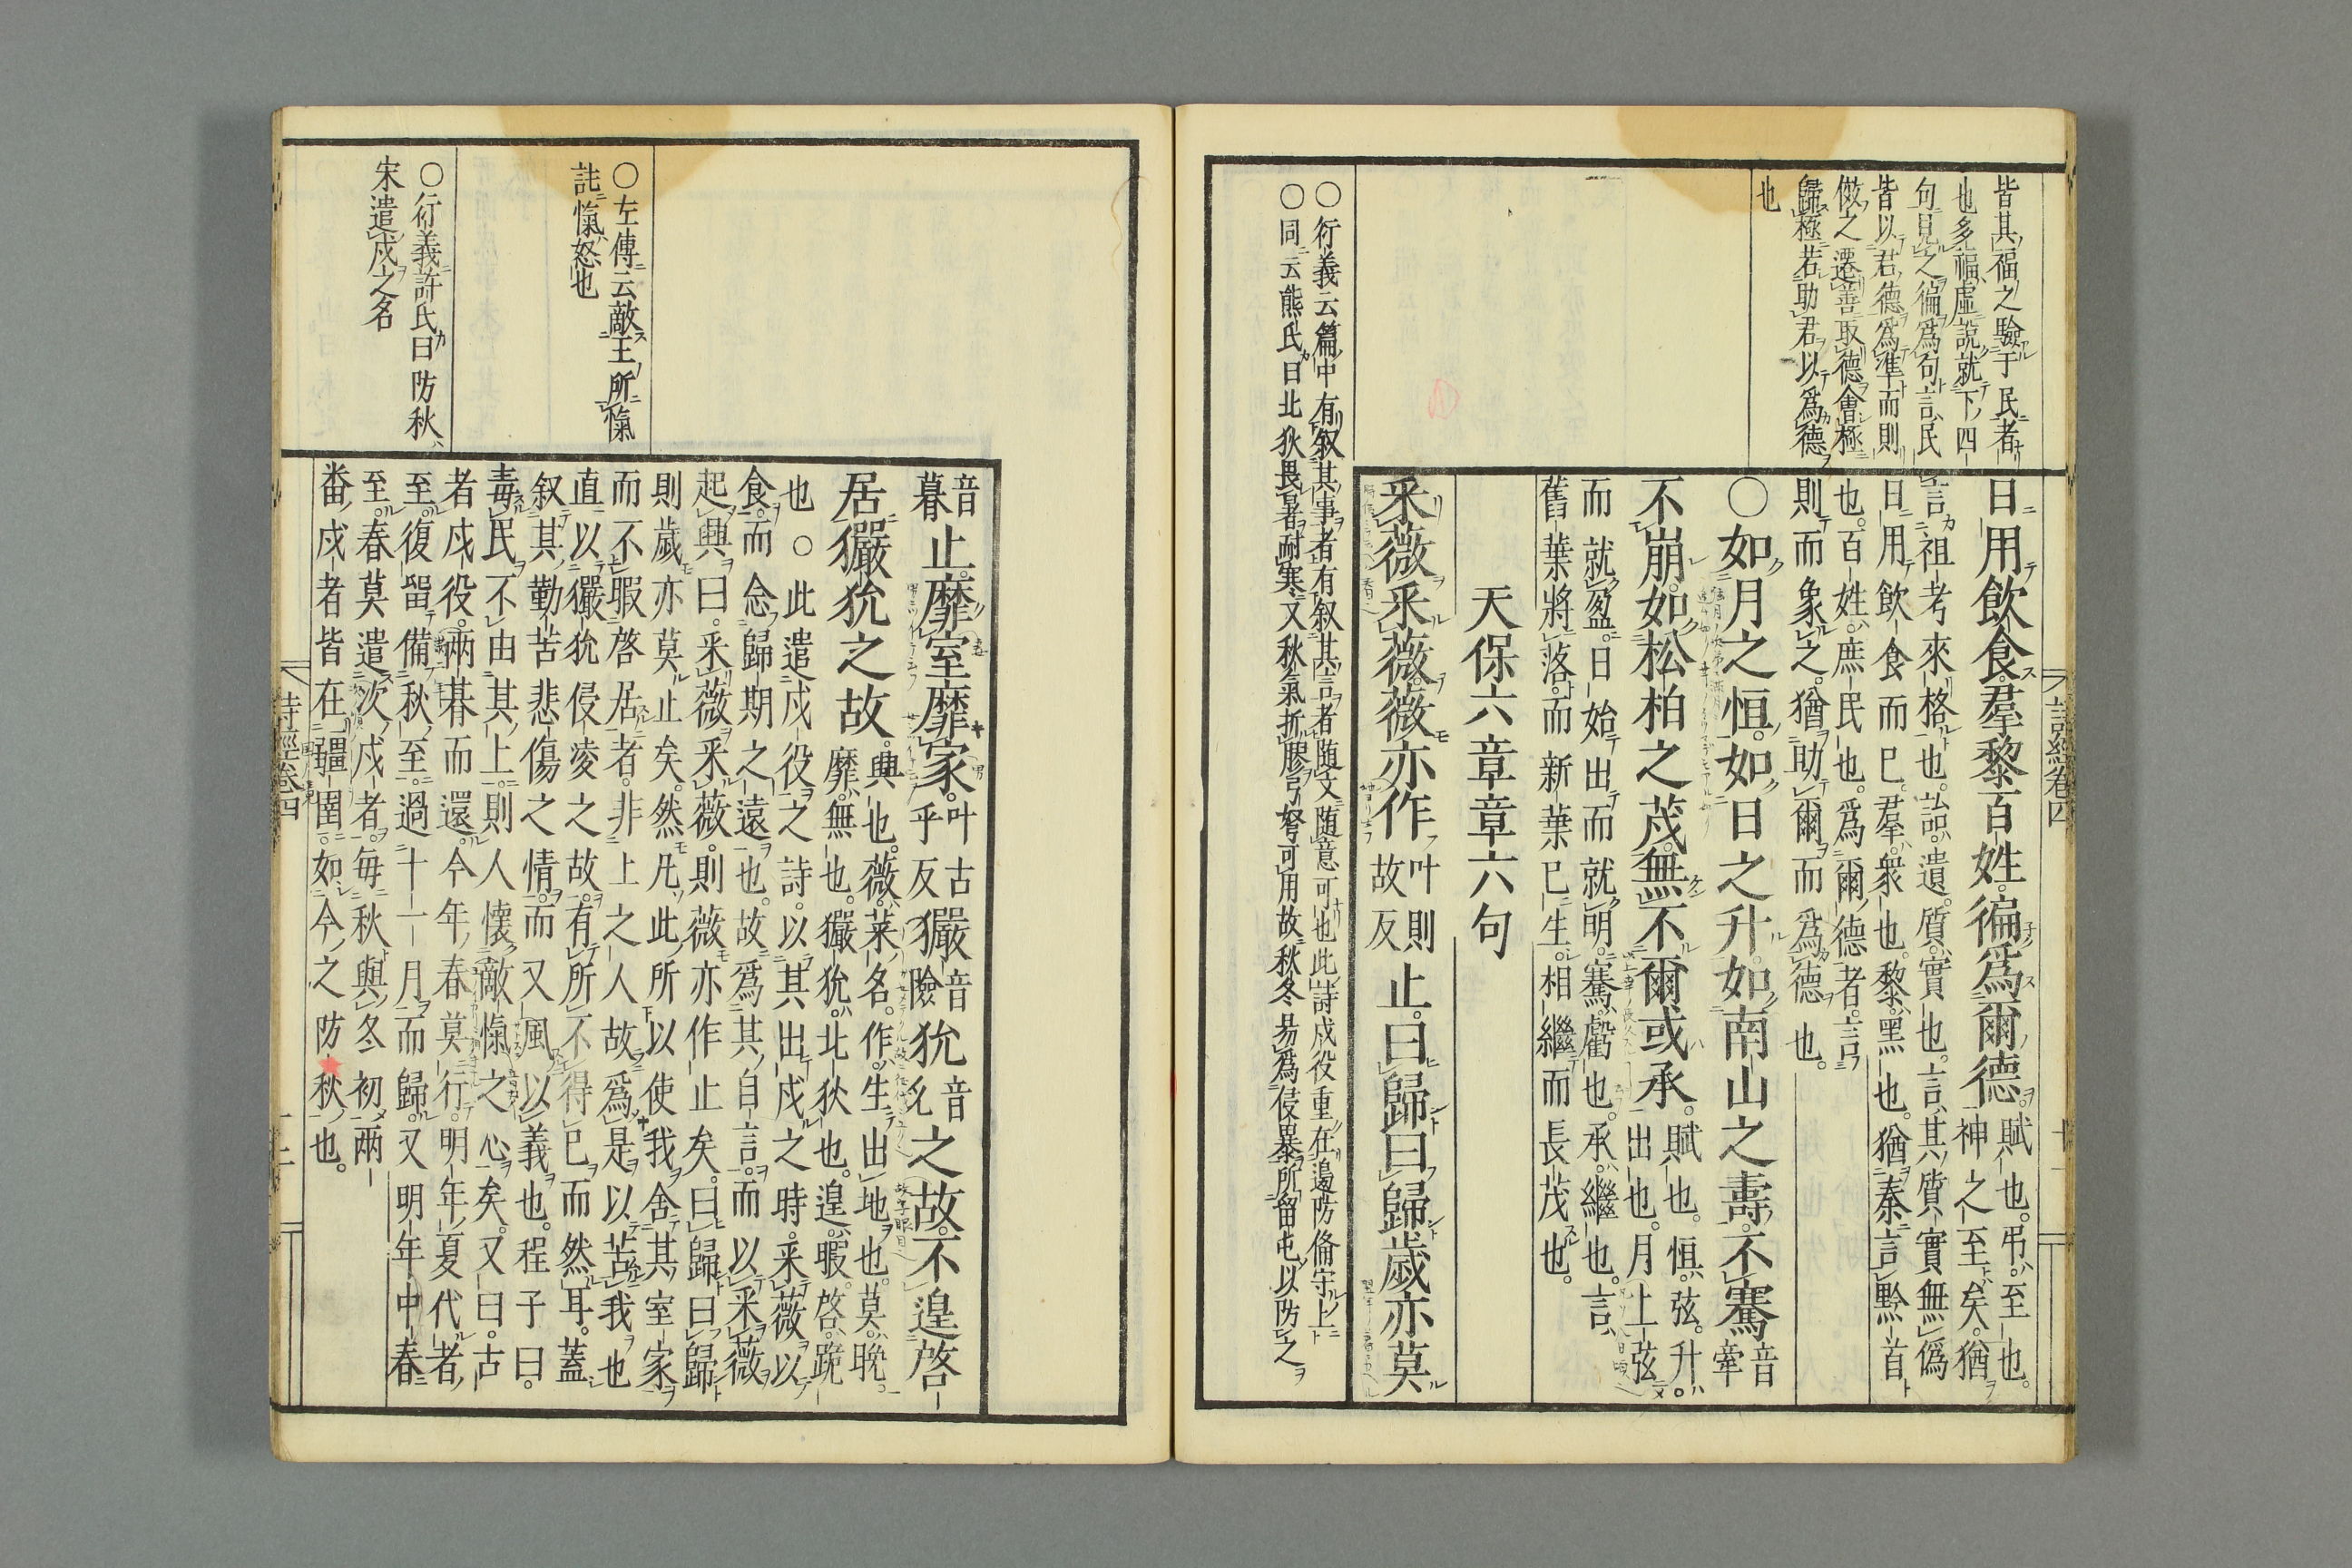 皆其福之驗于民者
也多福虛說就下四
句見之徧爲句言民
皆以君德爲準而則
傚之遷善取德會極
歸極若助君以爲德
也
日用飲食羣黎百姓徧爲爾德賦也弔至也
神之至矣猶
言祖考來格也詒遺質實也言其質實無僞
日用飲食而已羣衆也黎黑也猶秦言黔首
也百姓庶民也爲爾德者言
則而象之猶助爾而爲德也
○如月之恒如日之升如南山之壽不騫音
牽
不崩如松柏之茂無不爾或承賦也恒弦升
出也月上弦
而就盈日始出而就明騫虧也承繼也言
舊葉將落而新葉已生相繼而長茂也
天保六章章六句
采薇采薇薇亦作叶則
故反止曰歸曰歸歲亦莫
○衍義云篇中有叙其事者有叙其言者随文随意可也此詩戍役重在邊防脩守上
○同云熊氏曰北狄畏暑耐寒又秋氣折膠弓弩可用故秋冬易爲侵暴所留屯以防之
詩經卷四
十一
○左傳云敵王所愾
註愾怒也
○衍義許氏曰防秋
宋遣戍之名
音
暮止靡室靡家叶古
乎反玁音
險狁音
允之故不遑啓
居玁狁之故興也薇菜名作生出地也莫晚
靡無也玁狁北狄也遑暇啓跪
也○此遣戍役之詩以其出戍之時采薇以
食而念歸期之遠也故爲其自言而以采薇
起興曰采薇采薇則薇亦作止矣曰歸曰歸
則歲亦莫止矣然凡此所以使我舍其室家
而不暇啓居者非上之人故爲是以苦我也
直以玁狁侵凌之故有所不得已而然耳蓋
叙其勤苦悲傷之情而又風以義也程子曰
毒民不由其上則人懷敵愾之心矣又曰古
者戍役兩朞而還今年春莫行明年夏代者
至復留備秋至過十一月而歸又明年中春
至春莫遣次戍者每秋與冬初兩
番戍者皆在疆圉如今之防秋也
詩經卷四
十二